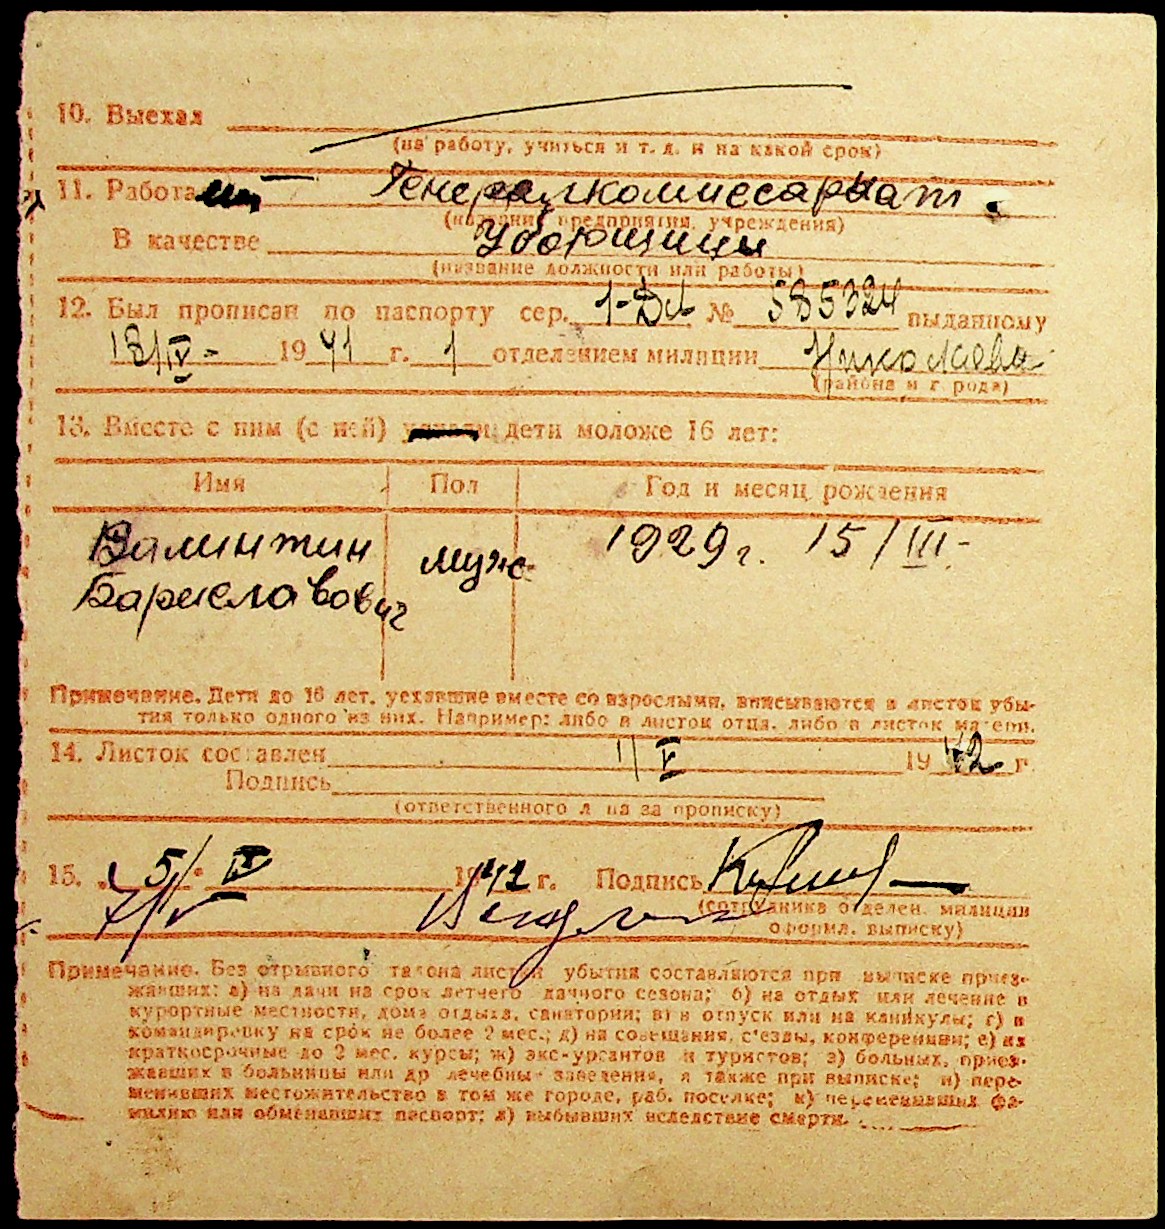 10. Выехал
(на работу, учиться и т. д. и на какой срок)
11. Работа Генералкомиссариат.
(название предприятия, учреждения)
В качестве Уборщицы
(название должности или работы)
12. Был прописан по паспорту сер. 1-ДЛ № 585324 выданному
18/IV- 1941 г. 1 отделением милиции Николаева
(района и города)
13. Вместе с ним (с ней) дети моложе 16 лет:
Имя Пол Год и месяц рождения
Валинтин муж 1929 г. 15/III-
Бариславович
Примечание. Дети до 16 лет, уехавшие вместе со взрослыми, вписываются в листок убы-
тия только одного из них. Например: либо в листок отца, либо в листок матери.
14. Листок составлен 1/V 1942 г.
Подпись
(ответственного лица за прописку)
15. 5/IV 1942 г. Подпись
(сотрудника отделен. милиции
оформл. выписку)
Примечание. Без отрывного талона листки убытия составляются при выписке приез-
жавших: а) на дачи на срок летнего дачного сезона; б) на отдых или лечение в
курортные местности, дома отдыха, санатории; в) в отпуск или на каникулы; г) в
командировку на срок не более 2 мес.; д) на совещания, с'езды, конференции; е) на
краткосрочные до 2 мес. курсы; ж) экскурсантов и туристов; з) больных, приез-
жавших в больницы или др лечебные заведения, а также при выписке; и) пере-
менивших местожительство в том же городе, раб. поселке; к) переменивших фа-
милию или обменявших паспорт; л) выбывших вследствие смерти.